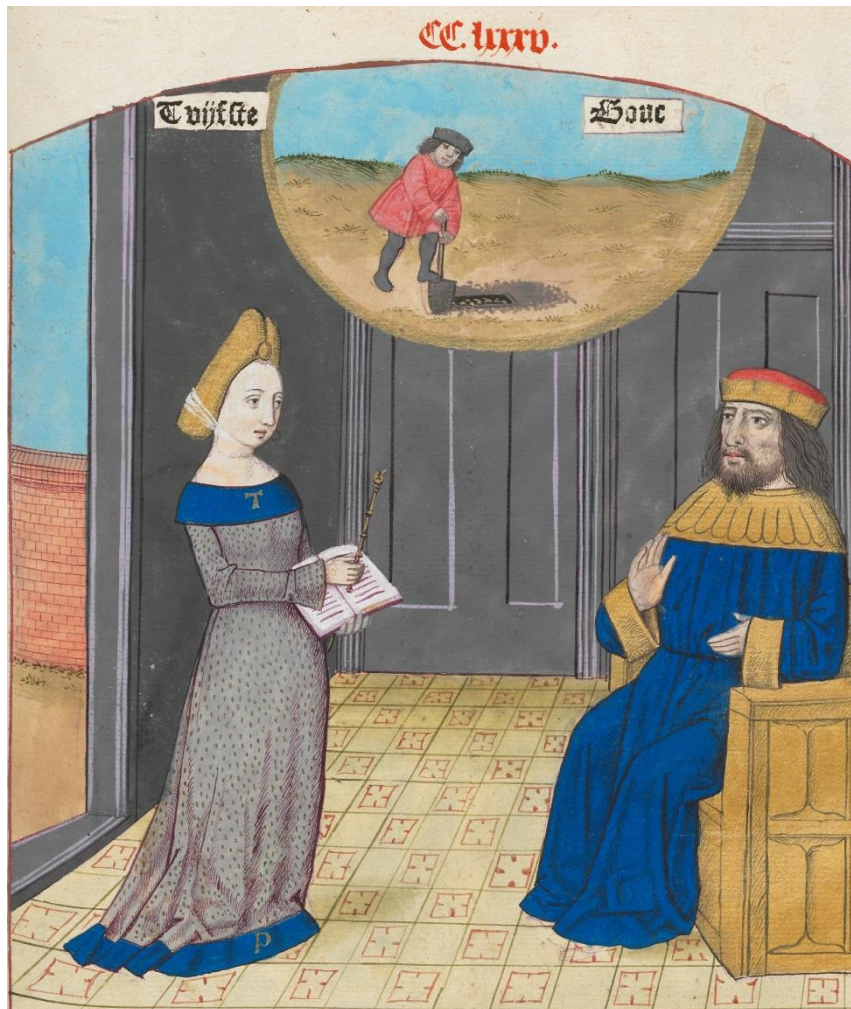 CC. lxxxv.
Tvijfste Bouc
T
P